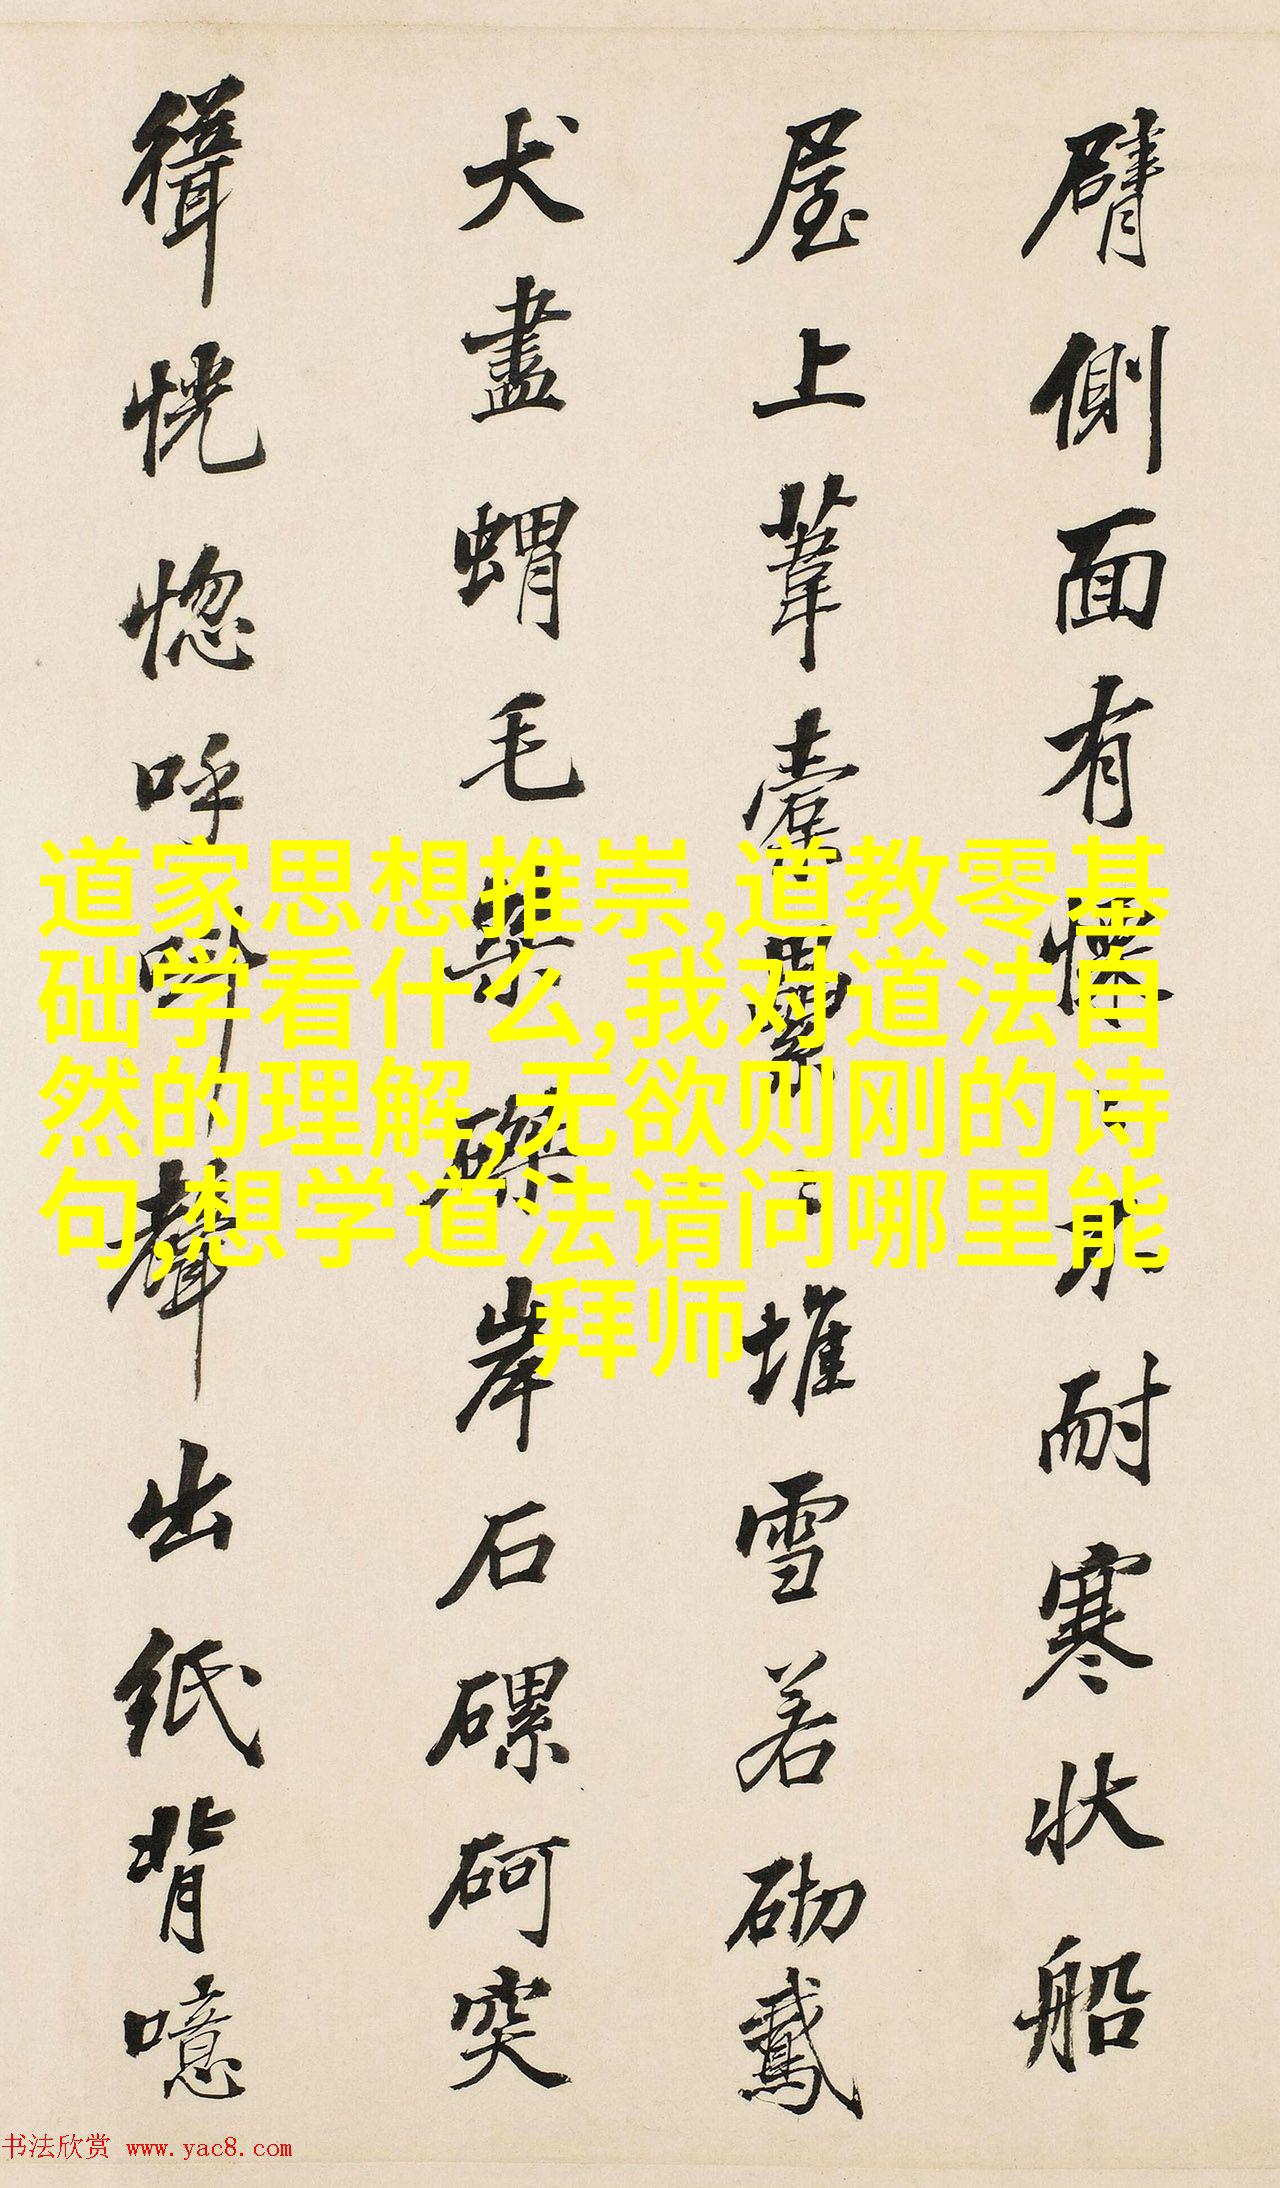 臂側面有懷〻不耐寒狀船
屋上葦橐纍〻堆雪若砌鳶
犬盡蝟毛枲磔岸石磥砢突
緝恍惚呼吟聲出紙背噫
道家思想推崇,道教零基
础学看什么,我对道法自
然的理解,无欲则刚的诗
句,想学道法请问哪里能
拜师
书法欣赏 www.yac8.com